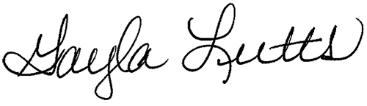 Gayla Lutts